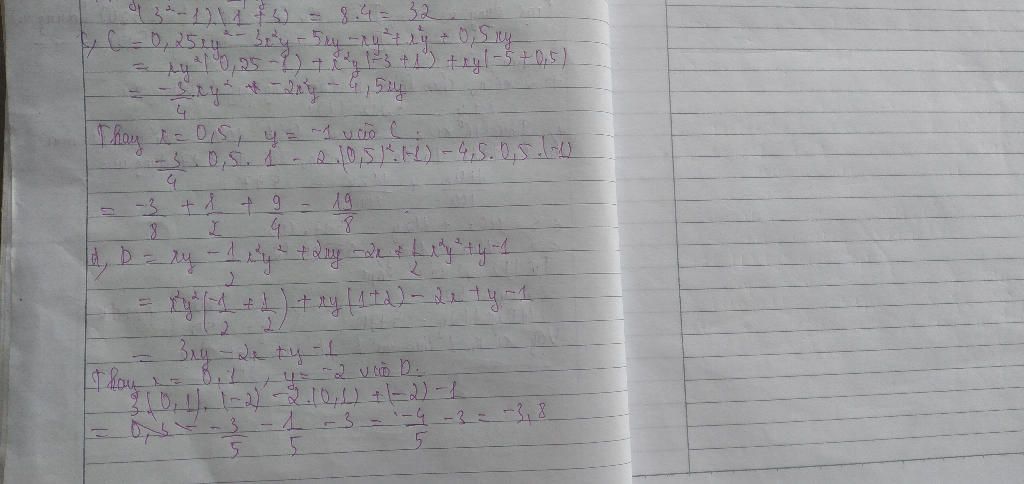 (3²-1)(1+3) = 8.4 = 32
c, C = 0,25xy² - 3x²y - 5xy - xy² + x²y + 0,5xy
= xy²(0,25-1) + x²y(-3+1) + xy(-5+0,5)
= -3/4 xy² - 2x²y - 4,5xy
Thay x = 0,5, y = -1 vào C.
-3/4 . 0,5 . 1 - 2.(0,5)².(-1) - 4,5.0,5.(-1)
= -3/8 + 1/2 + 9/4 = 19/8
d, D = xy - 1/2 x²y² + 2xy - 2x + 1/2 x²y² + y - 1
= x²y²(-1/2 + 1/2) + xy(1+2) - 2x + y - 1
= 3xy - 2x + y - 1
Thay x = 0,1, y = -2 vào D.
3.(0,1).(-2) - 2.(0,1) + (-2) - 1
= -3/5 - 1/5 - 3 = -4/5 - 3 = -3,8